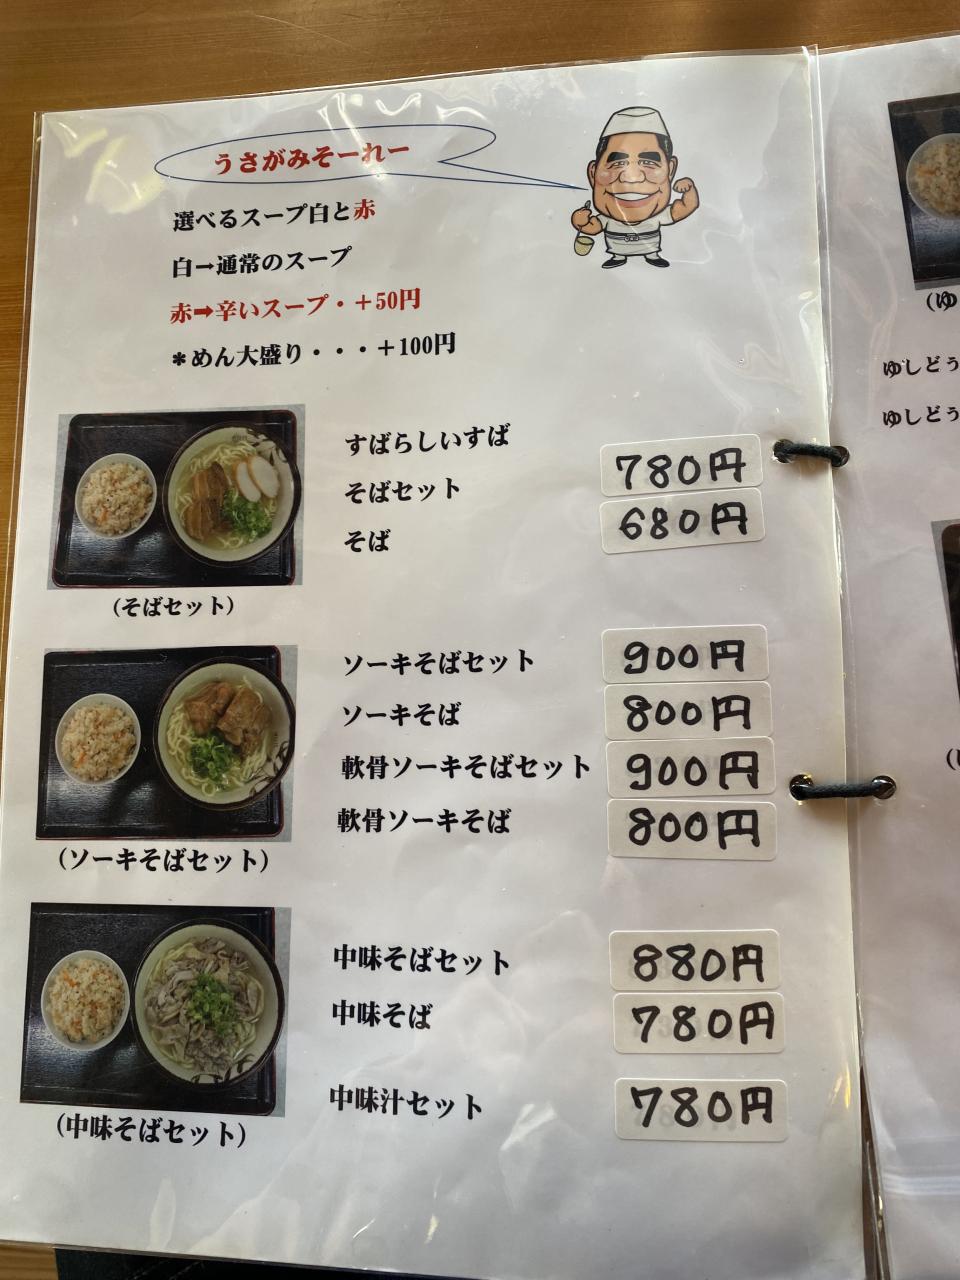 うさがみそーれー
選べるスープ白と赤
白→通常のスープ
赤➡辛いスープ・＋50円
＊めん大盛り・・・＋100円
すばらしいすば
そばセット 780円
そば 680円
(そばセット)
ソーキそばセット 900円
ソーキそば 800円
軟骨ソーキそばセット 900円
軟骨ソーキそば 800円
(ソーキそばセット)
中味そばセット 880円
中味そば 780円
中味汁セット 780円
(中味そばセット)
(ゆ
ゆしどう
ゆしどう